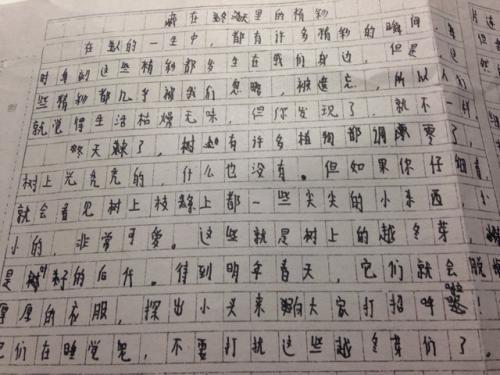 藏在
里的精彩
在我的一生中,都有许多精彩的瞬间,
时真的这些精彩都发生在我们身边,但是
些精彩都几乎被我们忽略,被遗忘,所以人们
就觉得生活枯燥无味,但你发现了,就不一样
冬天来了,树
有许多植物都凋零了,
树上光秃秃的,什么也没有。但如果你仔细看,
就会看见树上枝条上都一些尖尖的小东西
小的,非常可爱。这些就是树上的越冬芽,
是树籽的后代。待到明年春天,它们就会脱
厚厚的衣服,探出小头来向大家打招呼
它们在睡觉呢,不要打扰这些越冬芽们了。